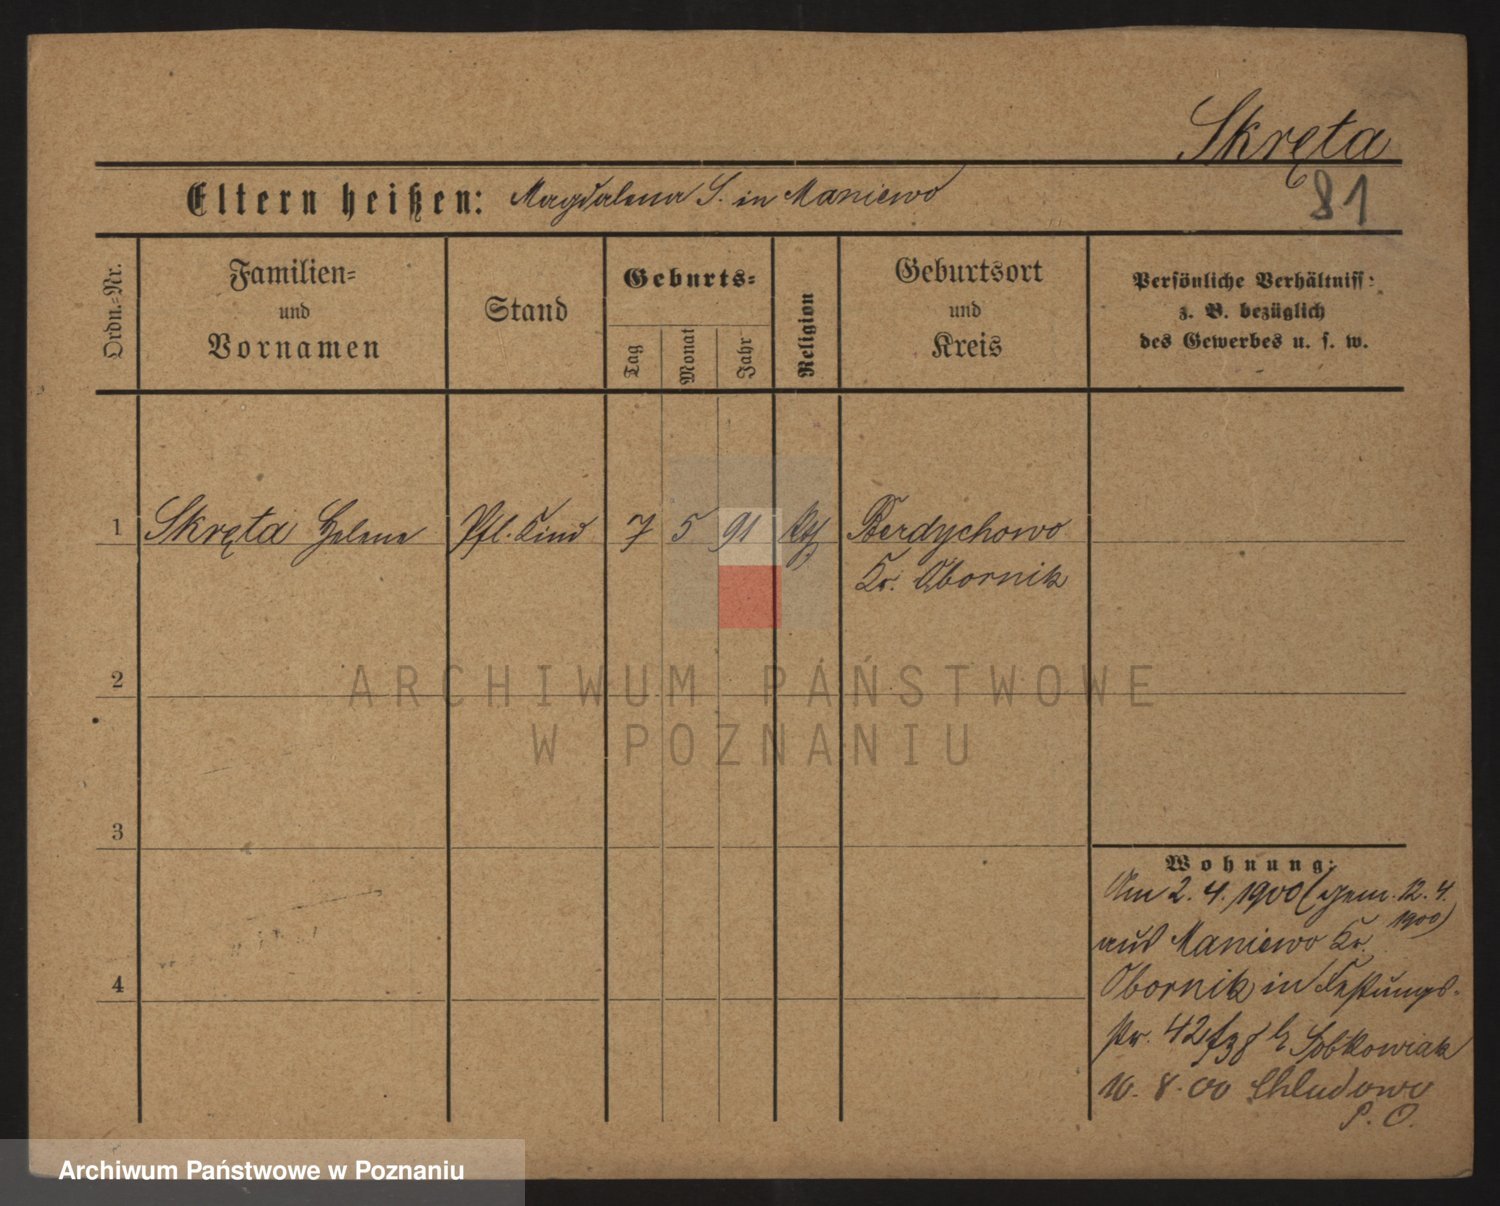 Skręta
81
Eltern heißen: Magdalena S. in Maniewo
Ordn.-Nr.
Familien-
und
Vornamen
Stand
Geburts-
Tag
Monat
Jahr
Religion
Geburtsort
und
Kreis
Persönliche Verhältniss:
z. B. bezüglich
des Gewerbes u. s. w.
1 Skręta Helene Pfl. Kind 7 5 91 kth Berdychowo
Kr. Obornik
2
3
4
Wohnung:
Am 2. 4. 1900 (gem. 12. 4.
1900)
aus Maniewo Kr.
Obornik in Festungs-
str. 42 b Sobkowiak
10. 8. 00 Chludowo
P. O.
ARCHIWUM PAŃSTWOWE
W POZNANIU
Archiwum Państwowe w Poznaniu